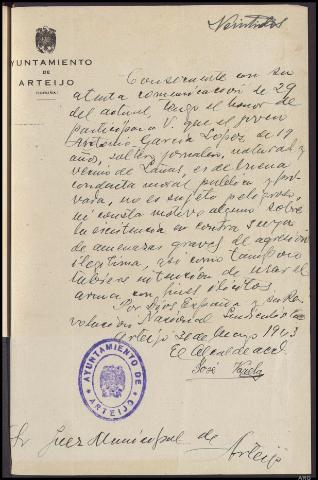 Veintidos
AYUNTAMIENTO
DE
ARTEIJO
(CORUÑA)
Consecuente con su
atenta comunicacion de 29
del actual, tengo el honor de
participar a V. que el joven
Antonio Garcia Lopez de 19
años, soltero jornalero, natural y
vecino de Lañas, es de buena
conducta moral publica y pri-
vada, no es sujeto peligroso,
ni consta motivo alguno sobre
la existencia en contra suya
de amenazas graves de agresion
ilegitima, asi como tampoco
tubiese intencion de usar el
arma con fines ilicitos.
Por Dios España y su Re-
volucion Nacional Sindicalista
Arteijo 30 de 1943
El Alcalde accl.
José Varela
AYUNTAMIENTO DE
ARTEIJO
Sr Juez Municipal de Arteijo